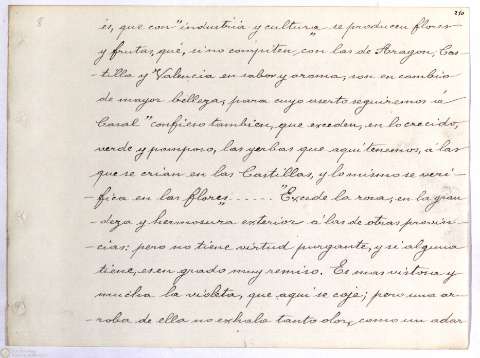 210
8
és, que con "industria y cultura" se producen flores
y frutas, que, si no compiten, con las de Aragon, Cas-
-tilla y Valencia en sabor y aroma, son en cambio
de mayor belleza, para cuyo aserto seguiremos á
Casal "confieso tambien, que exceden, en lo crecido,
verde y pomposo, las yerbas que aqui tenemos, á las
que se crian en las Castillas, y lo mismo se veri-
-fica en las flores" ..... "Excede la rosa, en la gran-
-deza y hermosura exterior á las de otras provin-
-cias: pero no tiene virtud purgante, y si alguna
tiene, es en grado muy remiso. Es mas vistosa y
mucha la violeta, que aqui se coje; pero una ar-
-roba de ella no exhala tanto olor, como un adar